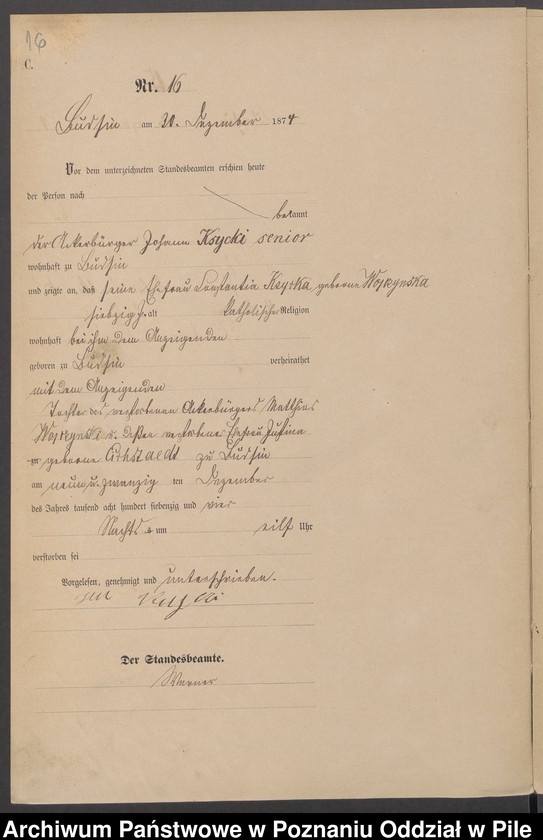 16
C.
Nr. 16
Budsin am 30. Dezember 1874
Vor dem unterzeichneten Standesbeamten erschien heute
der Person nach
bekannt
der Ackerbürger Johann Ksycki senior
wohnhaft zu Budsin
und zeigte an, daß seine Ehefrau Constantia Ksycka, geborne Woszynska
siebzig J. alt katholischer Religion
wohnhaft bei ihm dem Anzeigenden
geboren zu Budsin verheirathet
mit dem Anzeigenden
Tochter des verstorbenen Ackerbürgers Matthias
u. dessen verstorbene Ehefrau Justina
geborne zu Budsin
am neun u. zwanzig ten Dezember
des Jahres tausend acht hundert siebenzig und vier
Nachts um eilf Uhr
verstorben sei
Vorgelesen, genehmigt und unterschrieben.
Der Standesbeamte.
Werner
Archiwum Państwowe w Poznaniu Oddział w Pile